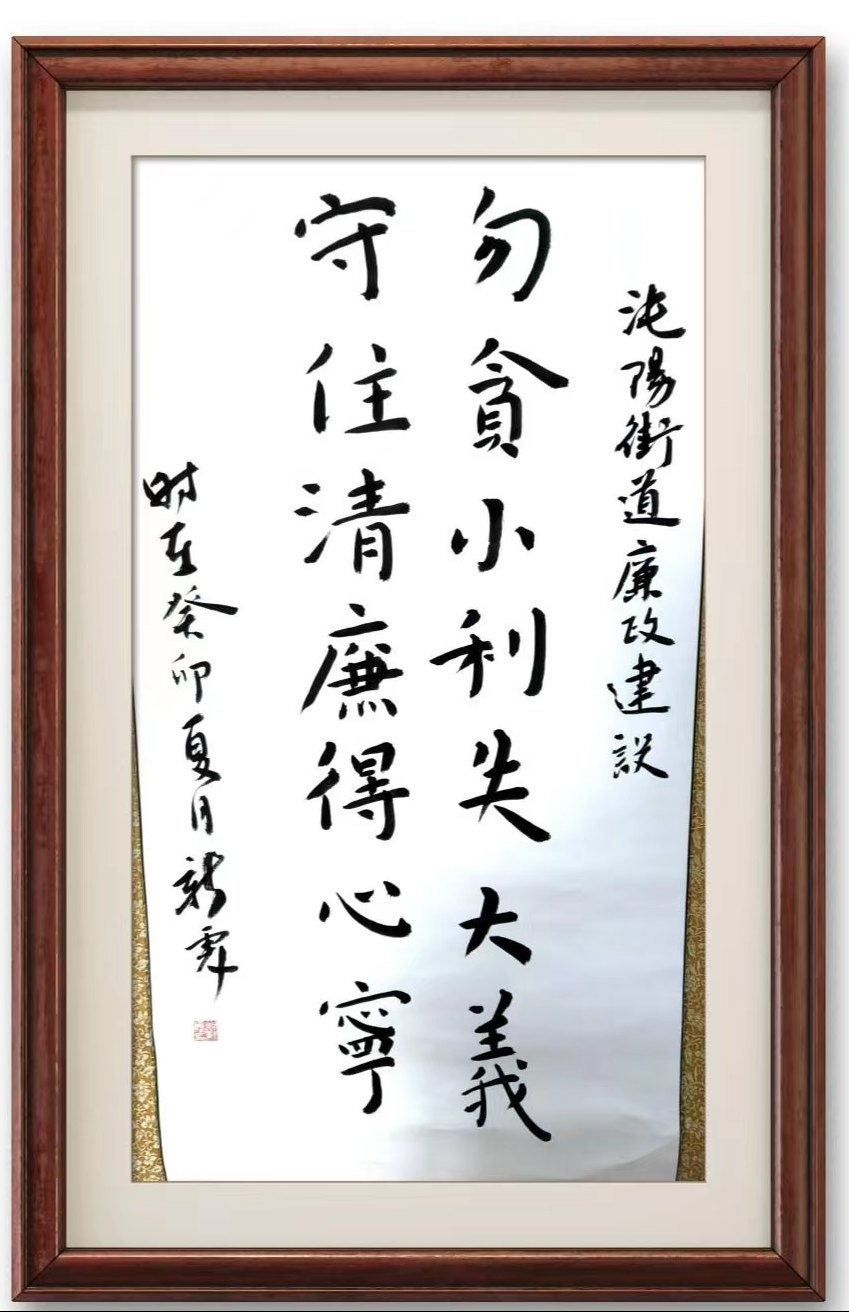 沌陽街道廉政建設
勿貪小利失大義
守住清廉得心寧
时在癸卯夏月